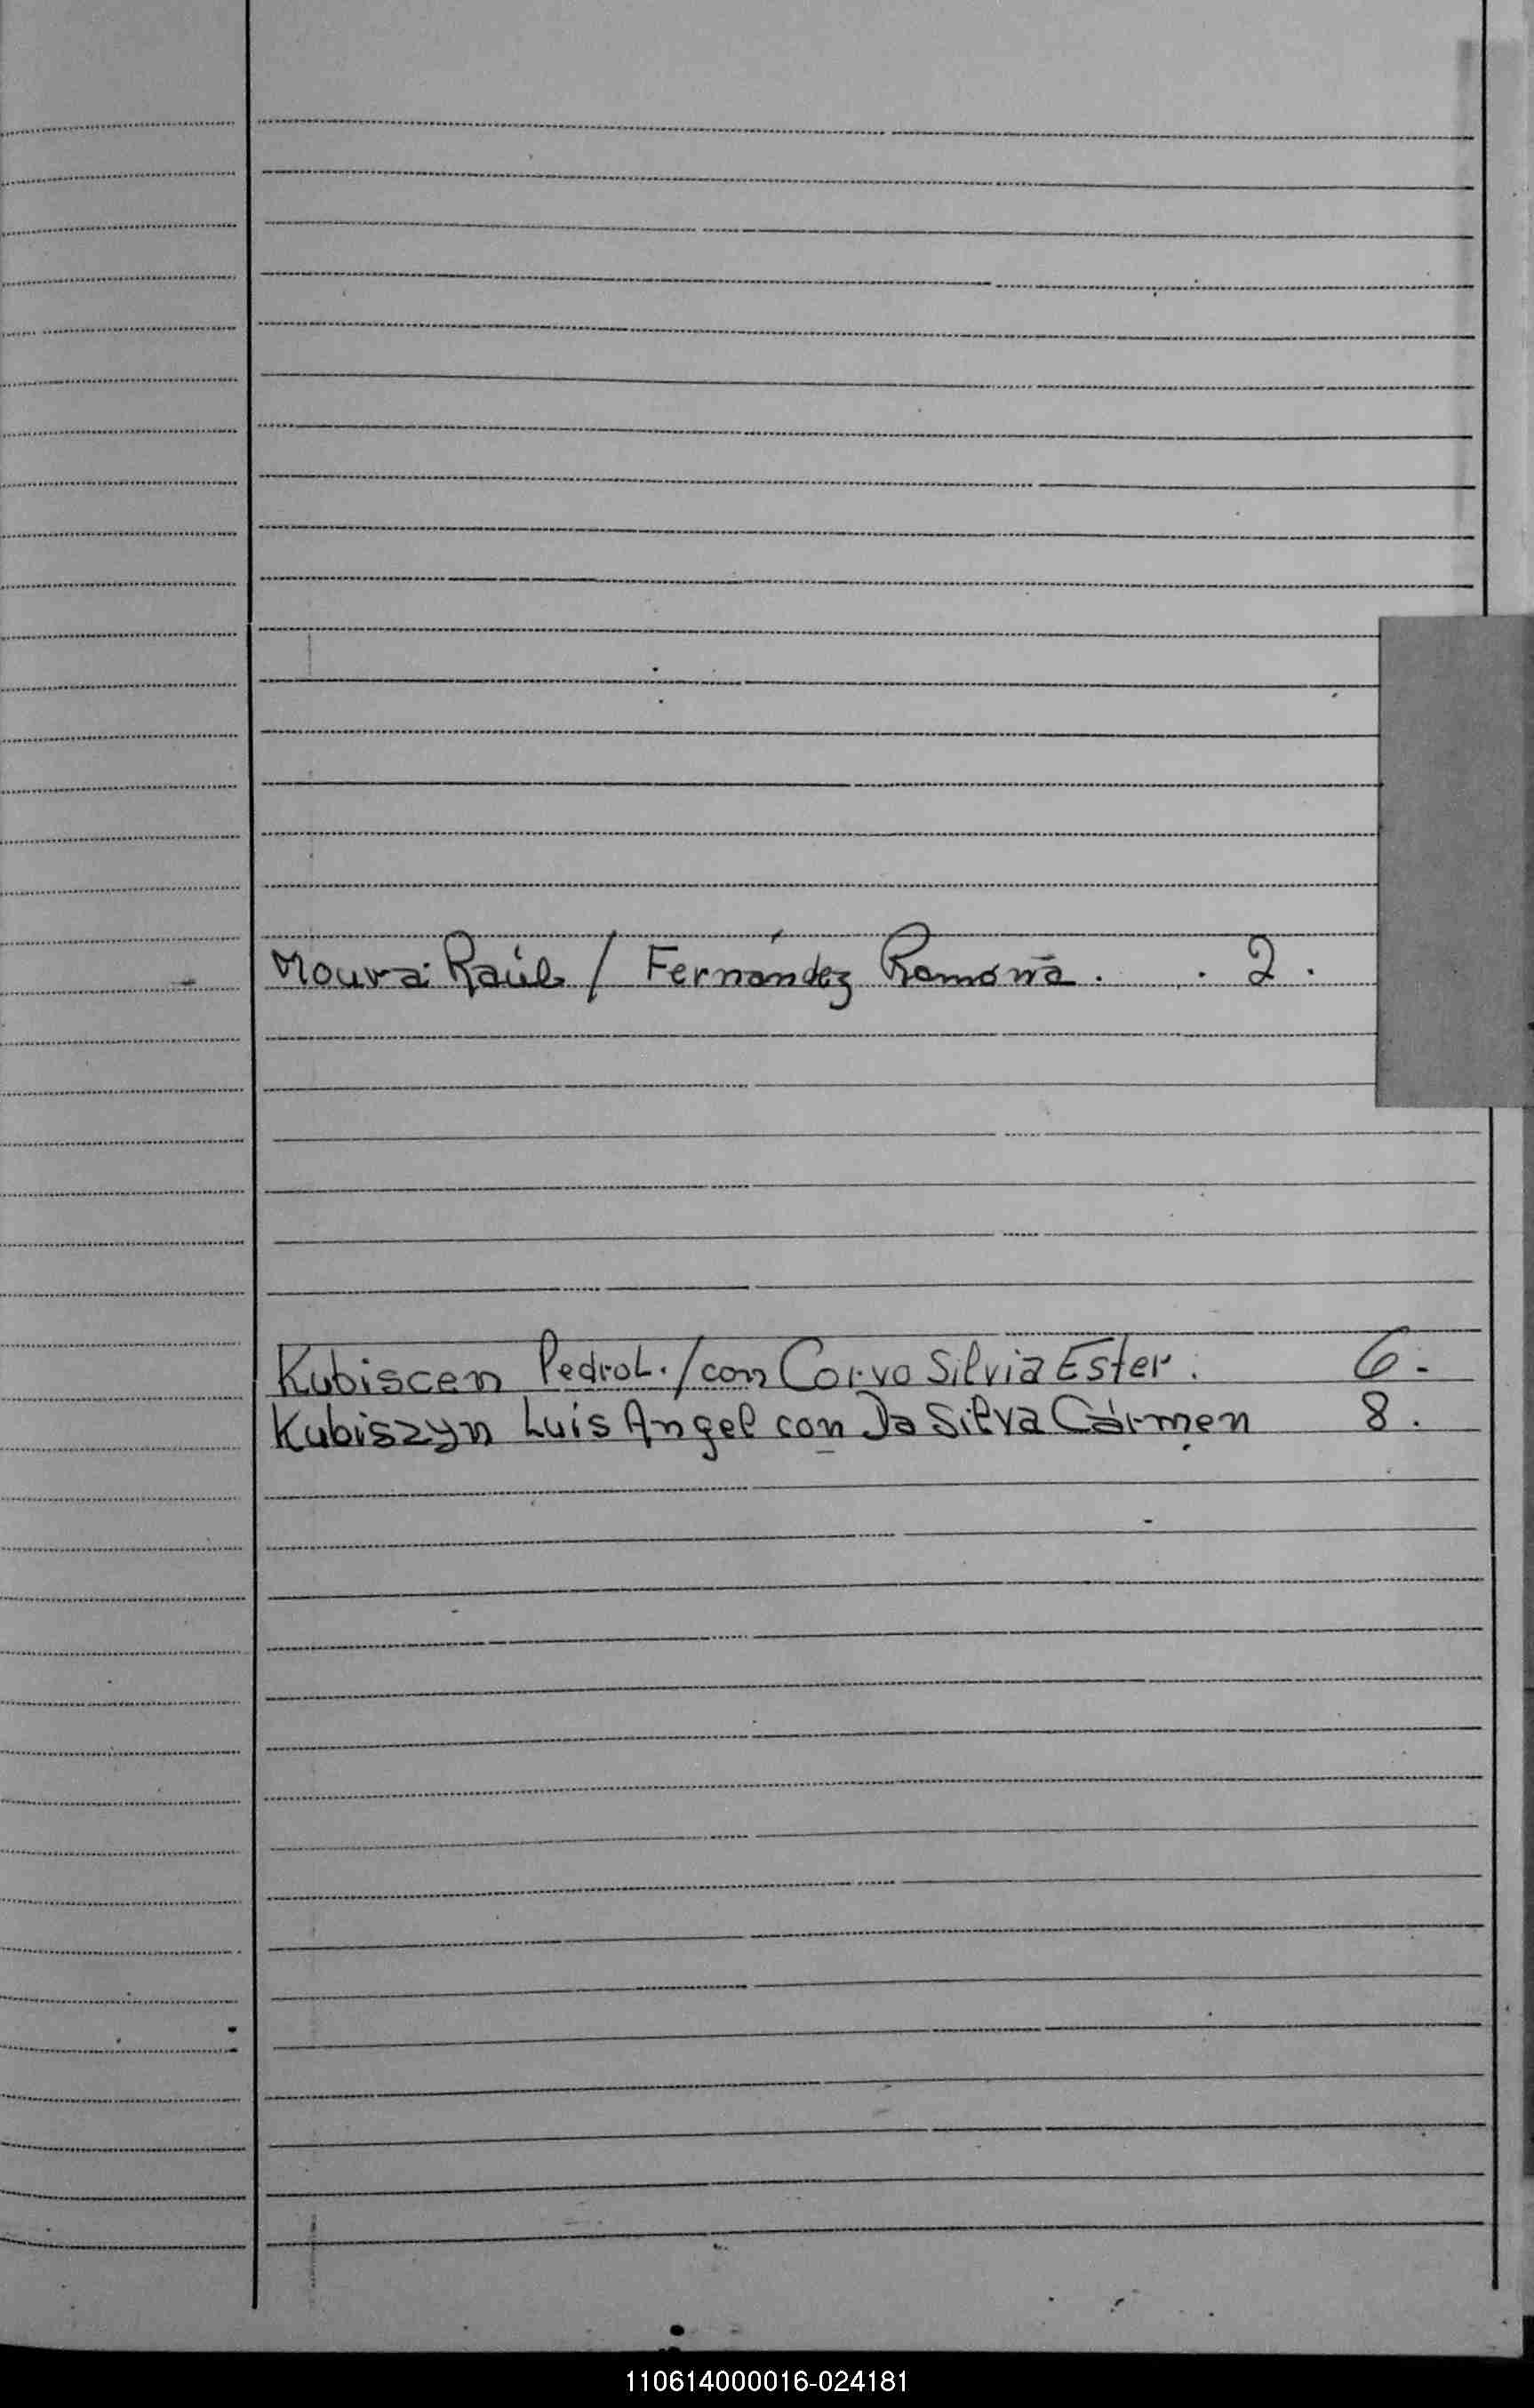 Moura Raúl / Fernández Ramona. . 2.
Kubiscen Pedro L. / con Corvo Silvia Ester. 6.
Kubiszyn Luis Angel con Da Silva Cármen 8.
110614000016-024181